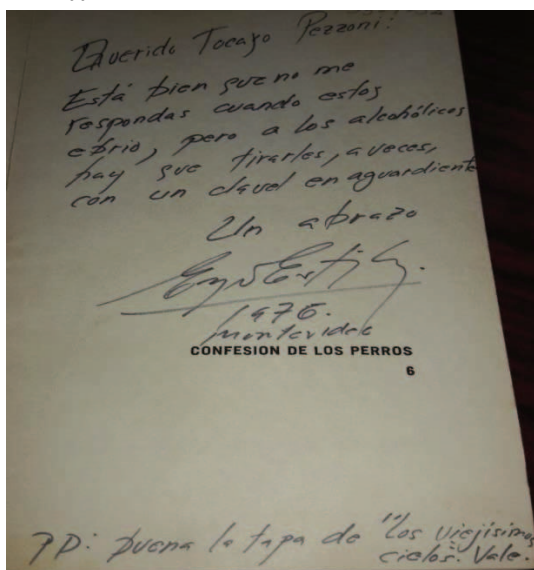 Querido Tocayo Pezzoni:
Está bien que no me
respondas cuando estoy
ebrio, pero a los alcohólicos
hay que tirarles, a veces,
con un clavel en aguardiente
Un abrazo
1976.
Montevideo
CONFESION DE LOS PERROS
6
PD: buena la tapa de "Los viejísimos
cielos". Vale.